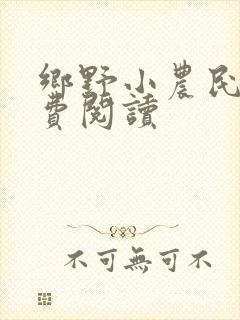 鄉野小農民
費閱讀
不可無可不